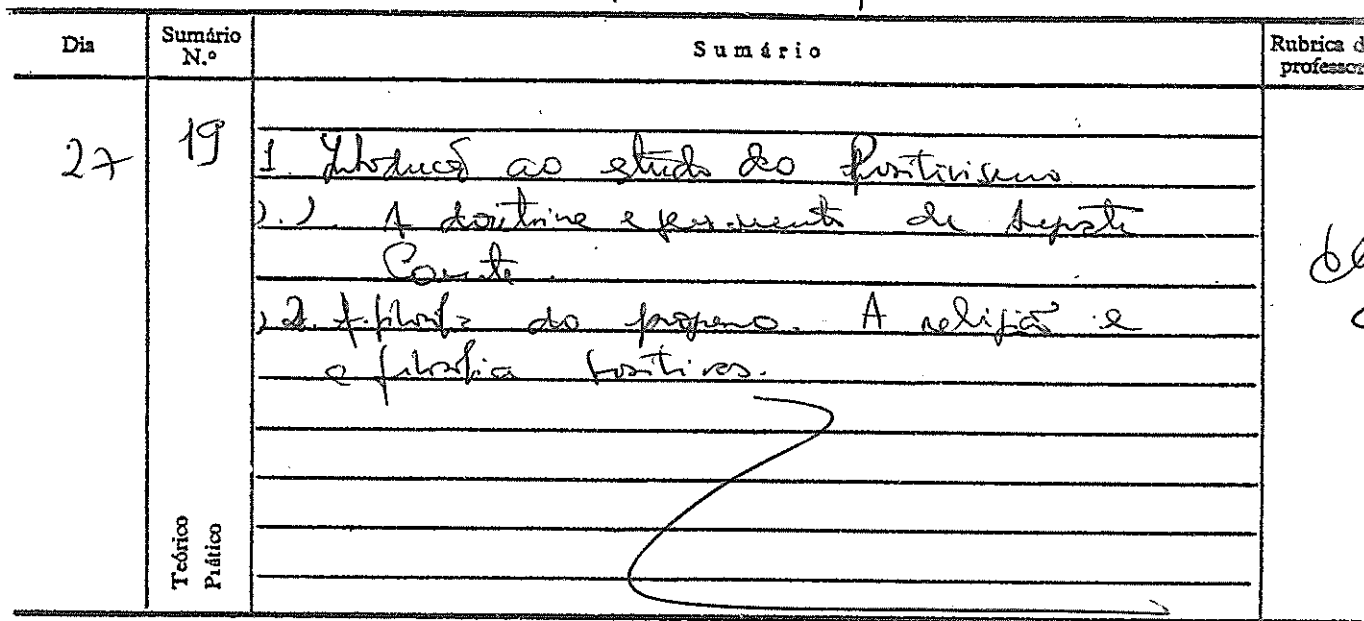 Dia
Sumário N.º
Sumário
Rubrica d
professor
27
19
1. Introdução ao estudo do Positivismo
A doutrina e pensamento de Augusto
Comte.
2. A filosofia do progresso. A religião e
a filosofia positivas.
Teórico
Prático